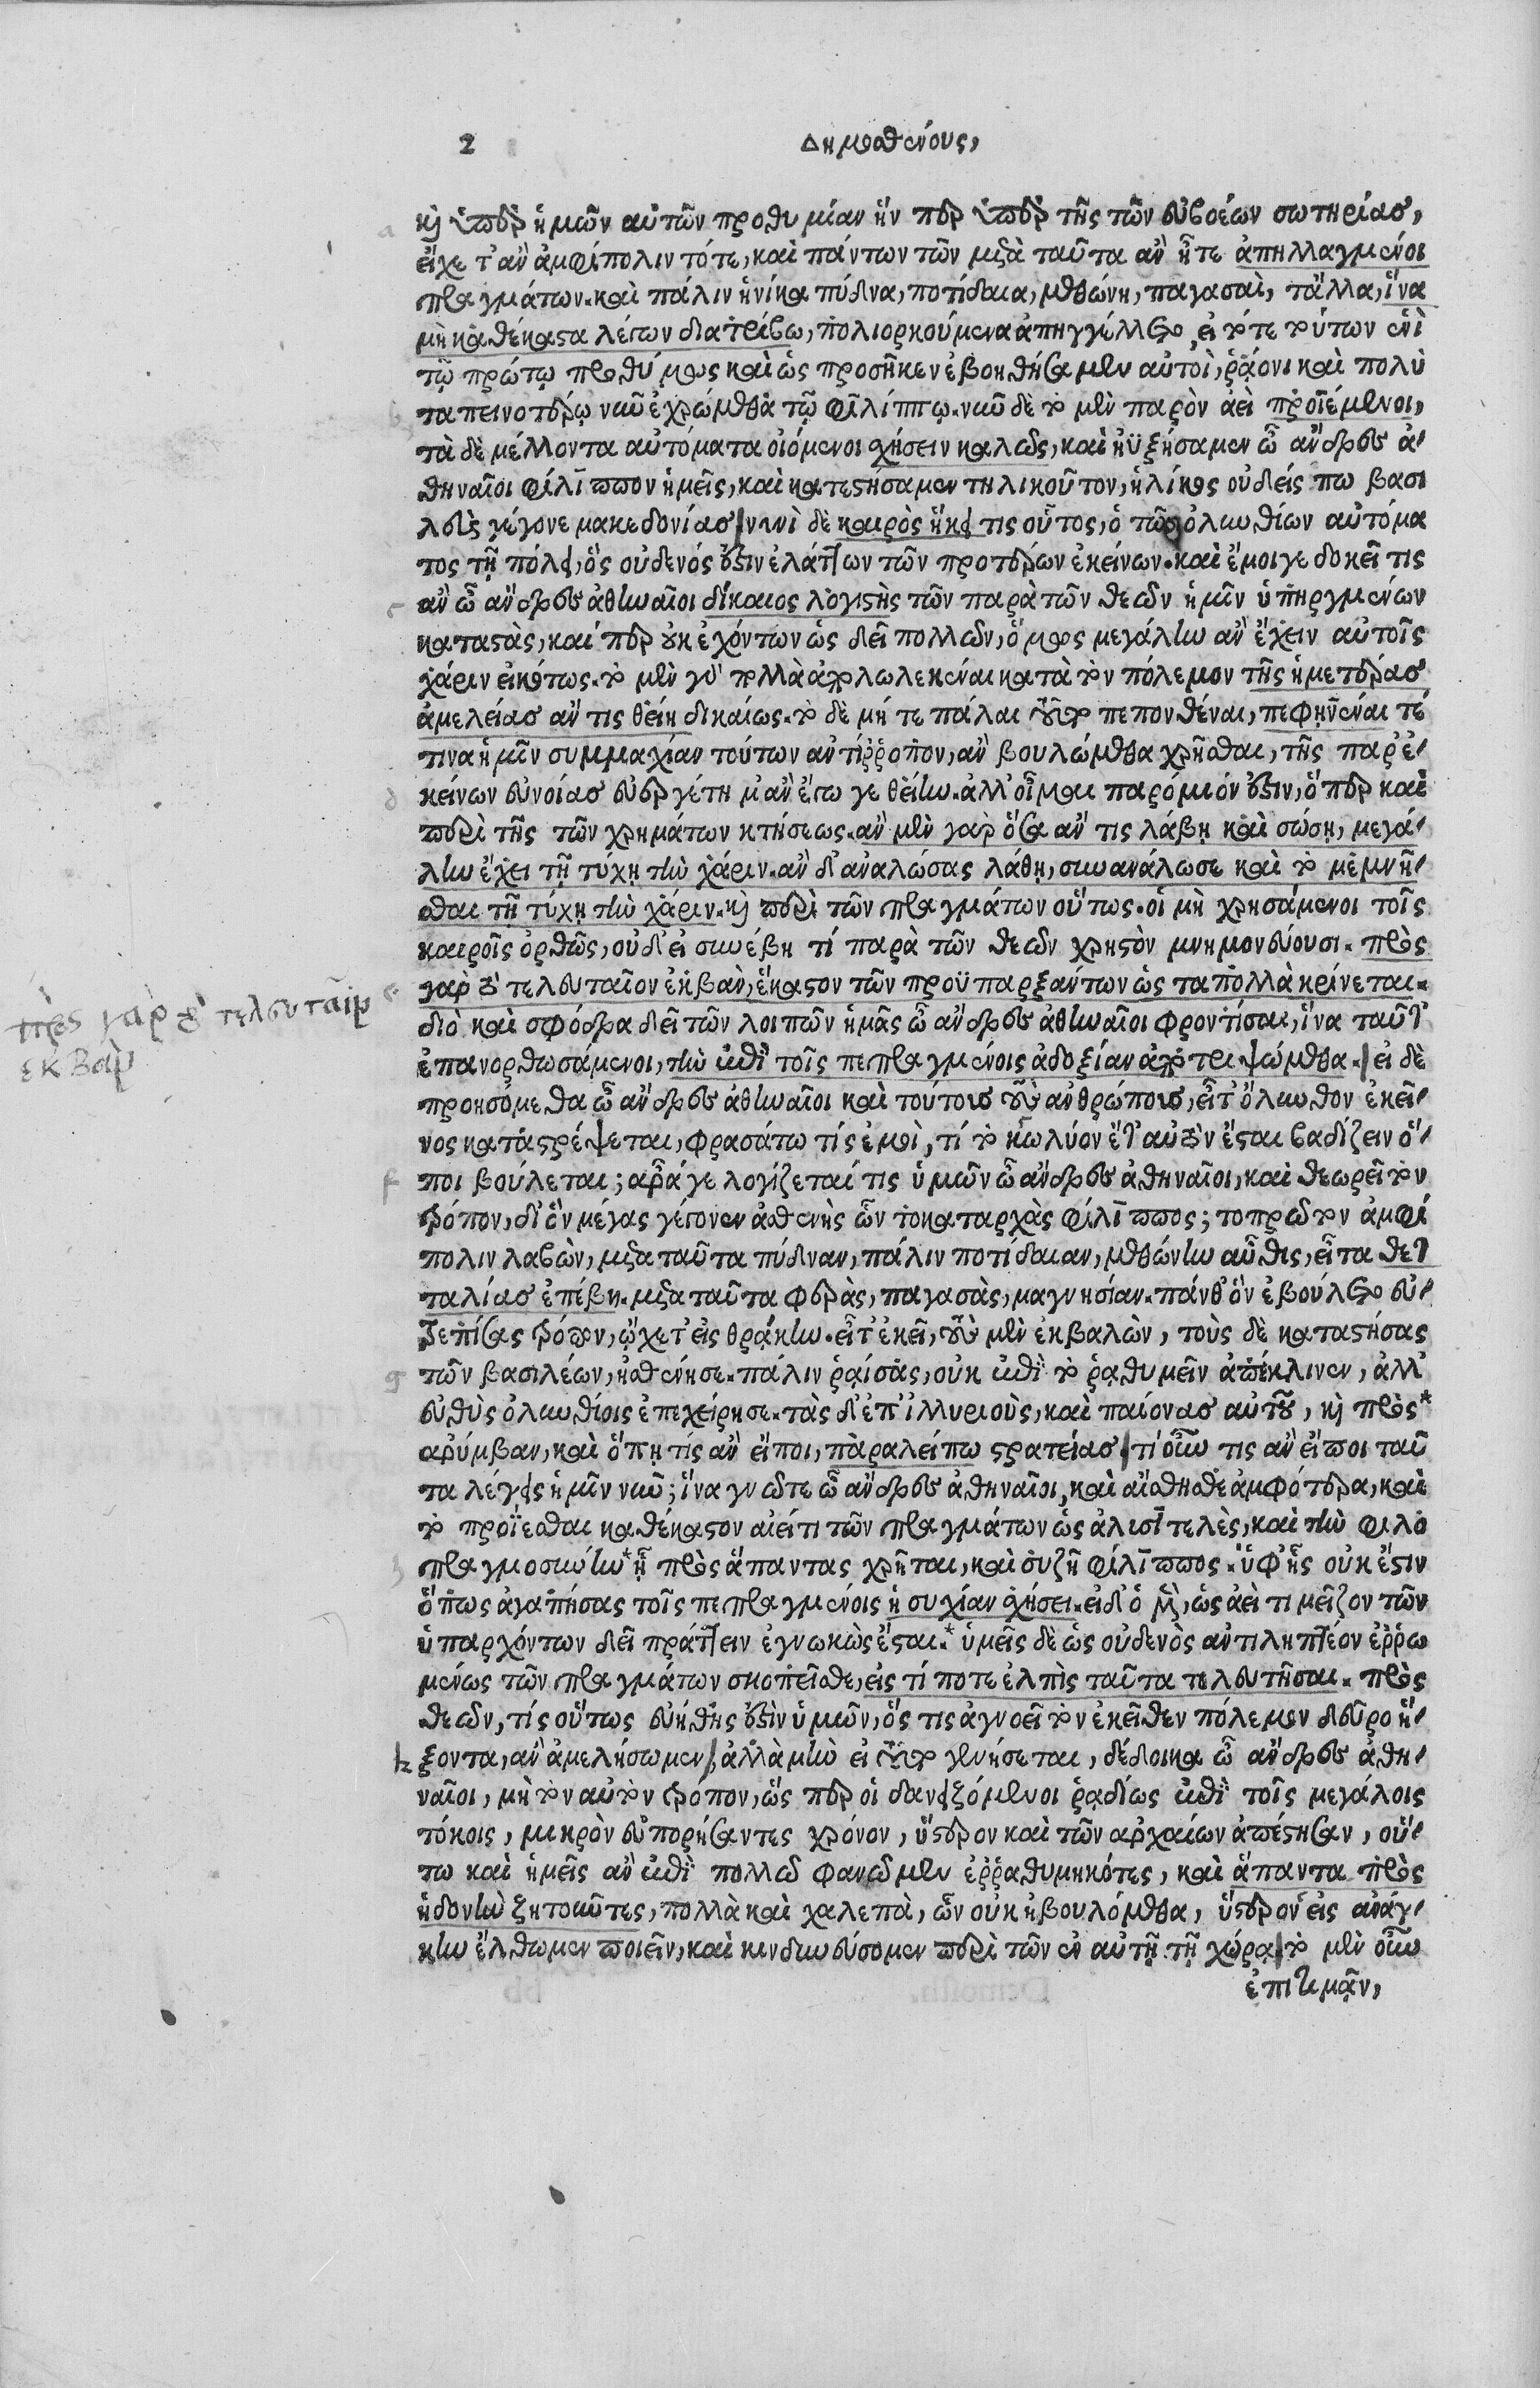 2 Δημοσθένους,
καὶ ὑπὲρ ἡμῶν αὐτῶν προθυμίαν ἥν περ ὑπὲρ τῆς τῶν εὐβοέων σωτηρίας,
εἴχετ' ἂν ἀμφίπολιν τότε, καὶ πάντων τῶν μετὰ ταῦτα ἂν ἦτε ἀπηλλαγμένοι
πραγμάτων. καὶ πάλιν ἡνίκα πύδνα, ποτίδαια, μεθώνη, παγασαὶ, τἄλλα, ἵνα
μὴ καθέκαστα λέγων διατρίβω, πολιορκούμενα ἀπηγγέλλετο, εἰ τότε τούτων ἑνὶ
τῷ πρώτῳ προθύμως καὶ ὡς προσῆκεν ἐβοηθήσαμεν αὐτοὶ, ῥᾴονι καὶ πολὺ
ταπεινοτέρῳ νῦν ἐχρώμεθα τῷ φιλίππῳ. νῦν δὲ τὸ μὲν παρὸν ἀεὶ προϊέμενοι,
τὰ δὲ μέλλοντα αὐτόματα οἰόμενοι σχήσειν καλῶς, καὶ ηὐξήσαμεν ὦ ἄνδρες ἀ-
θηναῖοι φίλιππον ἡμεῖς, καὶ κατεστήσαμεν τηλικοῦτον, ἡλίκος οὐδείς πω βασι
λεὺς γέγονε μακεδονίας. νυνὶ δὲ καιρὸς ἥκει τις οὗτος, ὁ τῶν ὀλυνθίων αὐτόμα
τος τῇ πόλει, ὅς οὐδενός ἐστιν ἐλάττων τῶν προτέρων ἐκείνων. καὶ ἔμοιγε δοκεῖ τις
ἂν ὦ ἄνδρες ἀθηναῖοι δίκαιος λογιστὴς τῶν παρὰ τῶν θεῶν ἡμῖν ὑπηργμένων
καταστὰς, καίπερ οὐκ ἐχόντων ὡς δεῖ πολλῶν, ὅμως μεγάλην ἂν ἔχειν αὐτοῖς
χάριν εἰκότως. τὸ μὲν γὰρ πολλὰ ἀπολωλεκέναι κατὰ τὸν πόλεμον τῆς ἡμετέρας
ἀμελείας ἄν τις θείη δικαίως. τὸ δὲ μήτε πάλαι τοῦτο πεπονθέναι, πεφηνέναι τέ
τινα ἡμῖν συμμαχίαν τούτων ἀντίρροπον, ἂν βουλώμεθα χρῆσθαι, τῆς παρ' ἐ-
κείνων εὐνοίας εὐεργέτημ' ἂν ἔγωγε θείην. ἀλλ' οἶμαι παρόμοιόν ἐστιν, ὅπερ καὶ
περὶ τῆς τῶν χρημάτων κτήσεως. ἂν μὲν γὰρ ὅσα ἄν τις λάβῃ καὶ σώσῃ, μεγά-
λην ἔχει τῇ τύχῃ τὴν χάριν. ἂν δ' ἀναλώσας λάθῃ, συνανάλωσε καὶ τὸ μεμνῆ-
σθαι τῇ τύχῃ τὴν χάριν. καὶ περὶ τῶν πραγμάτων οὕτως. οἱ μὴ χρησάμενοι τοῖς
καιροῖς ὀρθῶς, οὐδ' εἰ συνέβη τί παρὰ τῶν θεῶν χρηστὸν μνημονεύουσι. πρὸς
γὰρ τὸ τελευταῖον ἐκβὰν, ἕκαστον τῶν προϋπαρξάντων ὡς ταπολλὰ κρίνεται.
πρὸς γὰρ τὸ τελευταῖον
ἐκβὰν
διὸ καὶ σφόδρα δεῖ τῶν λοιπῶν ἡμᾶς ὦ ἄνδρες ἀθηναῖοι φροντίσαι, ἵνα ταῦτ'
ἐπανορθωσάμενοι, τὴν ἐπὶ τοῖς πεπραγμένοις ἀδοξίαν ἀποτριψώμεθα. εἰ δὲ
προησόμεθα ὦ ἄνδρες ἀθηναῖοι καὶ τούτους τοὺς ἀνθρώπους, εἶτ' ὄλυνθον ἐκεῖ-
νος καταστρέψεται, φρασάτω τίς ἐμοὶ, τί τὸ κωλύον ἔτ' αὐτὸν ἔσται βαδίζειν ὅ-
ποι βούλεται; ἆρά γε λογίζεταί τις ὑμῶν ὦ ἄνδρες ἀθηναῖοι, καὶ θεωρεῖ τὸν
τρόπον, δι' ὃν μέγας γέγονεν ἀσθενὴς ὢν τοκαταρχὰς φίλιππος; τοπρῶτον ἀμφί
πολιν λαβὼν, μετα ταῦτα πύδναν, πάλιν ποτίδαιαν, μεθώνην αὖθις, εἶτα θετ
ταλίας ἐπέβη. μετα ταῦτα φερὰς, παγασὰς, μαγνησίαν. πάνθ' ὃν ἐβούλετο εὐ-
τρεπίσας τρόπον, ᾤχετ' εἰς θρᾴκην. εἶτ' ἐκεῖ, τοὺς μὲν ἐκβαλὼν, τοὺς δὲ καταστήσας
τῶν βασιλέων, ἠσθένησε. πάλιν ῥαΐσας, οὐκ ἐπὶ τὸ ῥαθυμεῖν ἀπέκλινεν, ἀλλ'
εὐθὺς ὀλυνθίοις ἐπεχείρησε. τὰς δ' ἐπ' ἰλλυριοὺς, καὶ παίονας αὐτοῦ, καὶ πρὸς*
ἀρύμβαν, καὶ ὅπῃ τίς ἂν εἴποι, παραλείπω στρατείας. τί οὖν τις ἂν εἴποι ταῦ
τα λέγεις ἡμῖν νῦν; ἵνα γνῶτε ὦ ἄνδρες ἀθηναῖοι, καὶ αἴσθησθε ἀμφότερα, καὶ
τὸ προΐεσθαι καθέκαστον αἰεί τι τῶν πραγμάτων ὡς ἀλυσιτελὲς, καὶ τὴν φιλο
πραγμοσύνην* ᾗ πρὸς ἅπαντας χρῆται, καὶ συζῇ φίλιππος. ὑφ' ἧς οὐκ ἔστιν
ὅπως ἀγαπήσας τοῖς πεπραγμένοις ἡσυχίαν σχήσει. εἰ δ' ὁ μὲν, ὡς ἀεί τι μεῖζον τῶν
ὑπαρχόντων δεῖ πράττειν ἐγνωκὼς ἔσται.* ὑμεῖς δὲ ὡς οὐδενὸς ἀντιληπτέον ἐρρω
μένως τῶν πραγμάτων σκοπεῖσθε, εἰς τί ποτε ἐλπὶς ταῦτα τελευτῆσαι. πρὸς
θεῶν, τίς οὕτως εὐήθης ἐστὶν ὑμῶν, ὅς τις ἀγνοεῖ τὸν ἐκεῖθεν πόλεμον δεῦρο ἥ-
ξοντα, ἂν ἀμελήσωμεν; ἀλλὰ μὴν εἰ τοῦτο γενήσεται, δέδοικα ὦ ἄνδρες ἀθη-
ναῖοι, μὴ τὸν αὐτὸν τρόπον, ὥς περ οἱ δανειζόμενοι ῥᾳδίως ἐπὶ τοῖς μεγάλοις
τόκοις, μικρὸν εὐπορήσαντες χρόνον, ὕστερον καὶ τῶν ἀρχαίων ἀπέστησαν, οὕ-
τω καὶ ἡμεῖς ἂν ἐπὶ πολλῷ φανῶμεν ἐρραθυμηκότες, καὶ ἅπαντα πρὸς
ἡδονὴν ζητοῦντες, πολλὰ καὶ χαλεπὰ, ὧν οὐκ ἠβουλόμεθα, ὕστερον εἰς ἀνάγ-
κην ἔλθωμεν ποιεῖν, καὶ κινδυνεύσομεν περὶ τῶν ἐν αὐτῇ τῇ χώρᾳ. τὸ μὲν οὖν
ἐπιτιμᾷν,